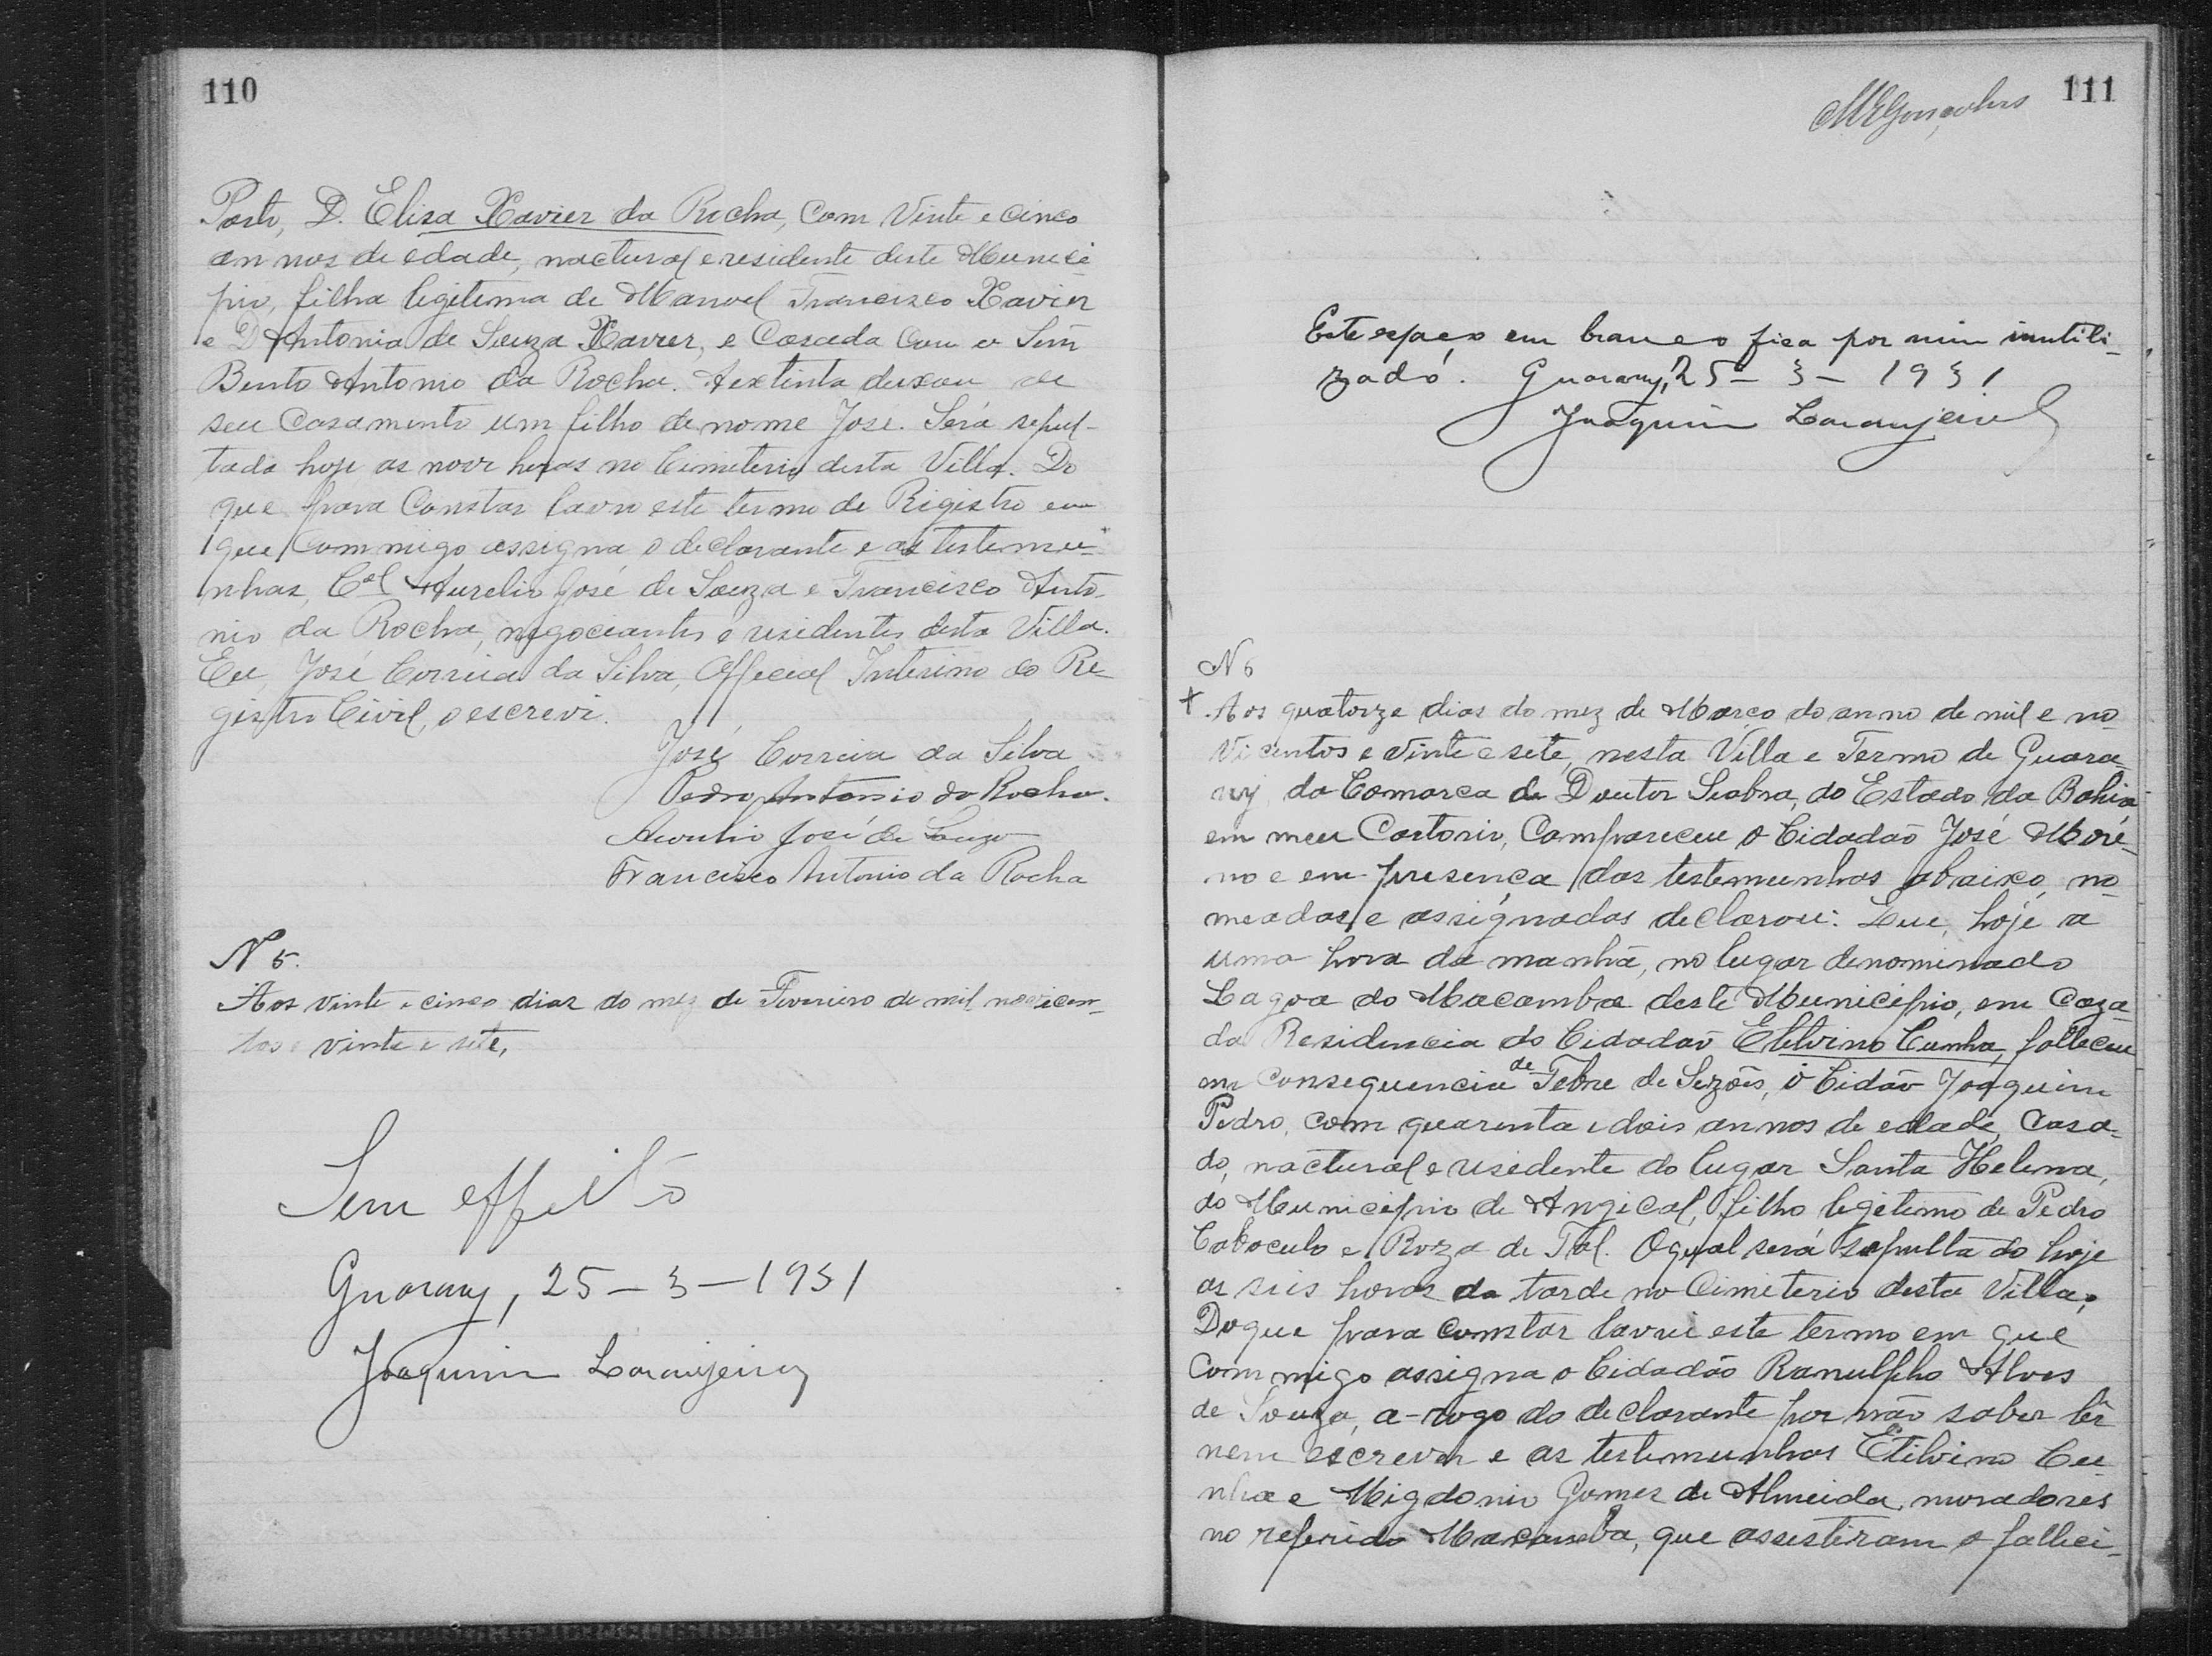 110
Parto, D. Elisa Xavier da Rocha, com vinte e cinco
annos de edade, nactural e residente deste Munici-
pio, filha legitima de Manoel Francisco Xavier
e D Antonia de Souza Xavier, e Casada com o Snr
Bento Antonio da Rocha. A extinta deixou de
seu Casamento um filho de nome José. Será sepul-
tada hoje as nove horas no Cimiterio desta Villa. Do
que para Constar lavro este termo de Rigistro em
que commigo assigna o declarante e as testemu-
nhas, Cel Aurelio José de Souza e Francisco Anto-
nio da Rocha, negociantes e residentes desta Villa.
Eu, José Correia da Silva, Official Interino do Re-
gistro Civil, o escrevi.
José Correia da Silva
Pedro Antonio da Rocha.
Aurelio José de Souza
Francisco Antonio da Rocha
N 5.
Aos vinte e cinco dias do mez de Fevereiro de mil novicen-
tos e vinte e sete,
Sem effeito
Guarany, 25-3-1931
Joaquim Laranjeira
111
MEGonçalves
Este espaço em branco fica por mim inutili-
zado. Guarany, 25-3-1931
Joaquim Laranjeira
N 6
+ Aos quatorze dias do mez de Março do anno de mil e no-
vicentos e vinte e sete, nesta Villa e Termo de Guara-
ny da Comarca de Doutor Seabra, do Estado da Bahia
em meu Cartorio, Compareceu o Cidadão José More-
no e em presença das testemunhas abaixo no-
meadas e assignadas declarou: Que, hoje a
uma hora da manhã, no lugar denominado
Lagoa do Macamba deste Municipio, em Caza
da Residencia do Cidadão Etelvino Cunha, falleceu
em consequencia de Febre de Sezões, o Cidão Joaquim
Pedro, com quarenta e dois annos de edade, Casa-
do, nactural e residente do lugar Santa Helena,
do Municipio de Angical, filho legitimo de Pedro
Caboculo e Roza de Tal. O qual será sepultado hoje
as seis horas da tarde no Cimiterio desta Villa.
Do que para constar lavrei este termo em que
commigo assigna o Cidadão Ranulpho Alves
de Souza, a-rogo do declarante por não saber lêr
nem escrever e as testemunhas Etilvino Cu-
nha e Migdonio Gomes de Almeida, moradores
no referido Macamba, que assestiram o falleci-